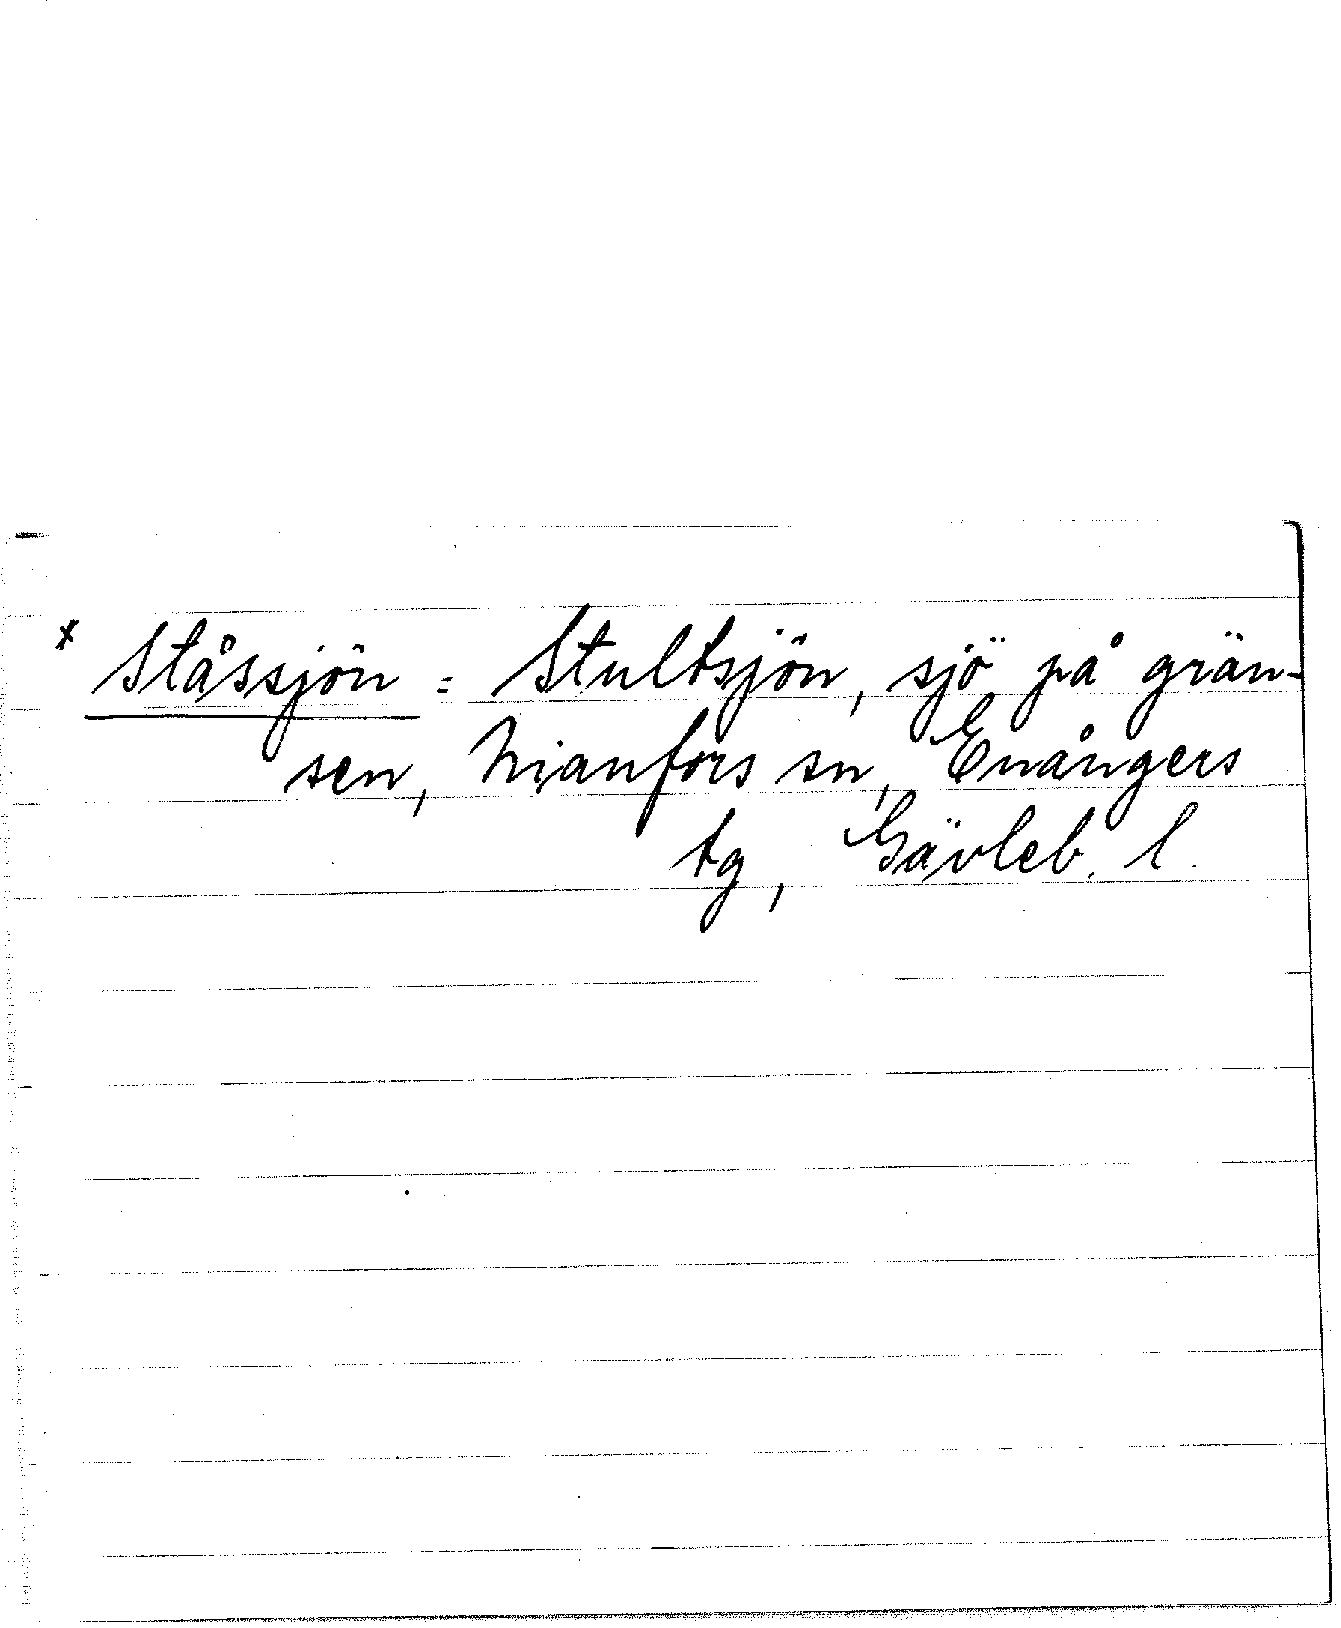 x Ståssjön = Stultsjön, sjö på grän-
sen, Nianfors sn, Enångers
tg, Gävleb. l.